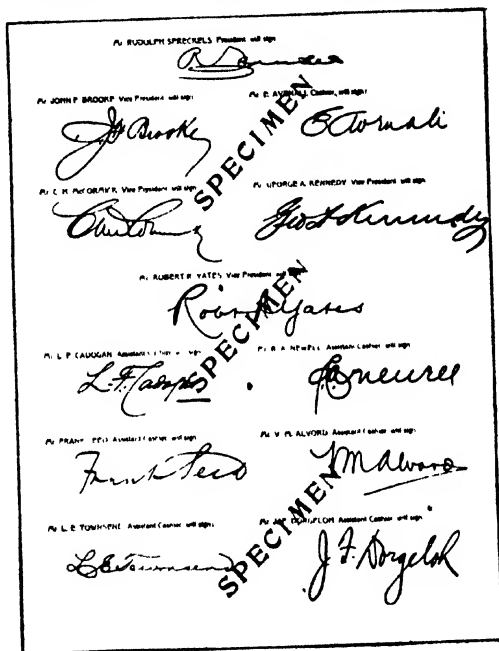 Mr RUDOLPH SPRECKELS President will sign
Mr JOHN P BROOKE Vice President will sign
Mr E AVENALI Cashier will sign
SPECIMEN
J P Brooke
E Avenali
Mr C H McCORMICK Vice President will sign
Mr GEORGE A KENNEDY Vice President will sign
Geo A Kennedy
Mr ROBERT R YATES Vice President will sign
Robt R Yates
SPECIMEN
Mr L P CADOGAN Assistant Cashier will sign
Mr R A NEWELL Assistant Cashier will sign
Mr FRANK Assistant Cashier will sign
Mr V M ALVORD Assistant Cashier will sign
Frank
VM Alvord
SPECIMEN
Mr L E TOWNSEND Assistant Cashier will sign
Mr DORGELOH Assistant Cashier will sign
L E Townsend
J F Dorgeloh